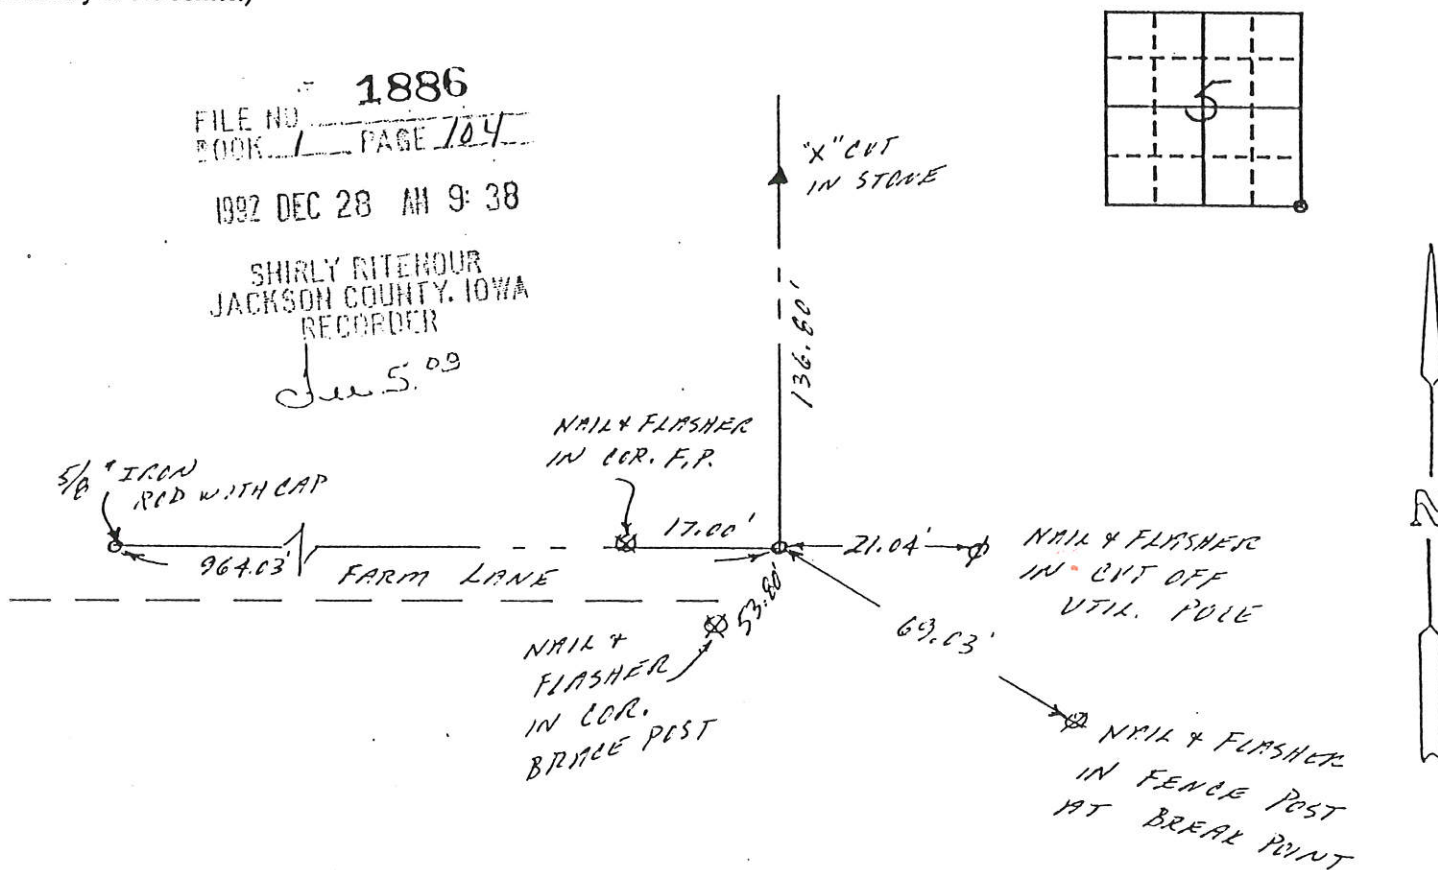 1886
FILE NO
BOOK 1 PAGE 104
1992 DEC 28 AM 9:38
SHIRLY RITENOUR
JACKSON COUNTY, IOWA
RECORDER
5.00
5
"X" CUT
IN STONE
136.80'
NAIL & FLASHER
IN COR. F.P.
5/8" IRON
ROD WITH CAP
17.00'
21.04'
964.03'
FARM LANE
53.80'
NAIL & FLASHER
IN CUT OFF
UTIL. POLE
69.03'
NAIL &
FLASHER
IN COR.
BRACE POST
NAIL & FLASHER
IN FENCE POST
AT BREAK POINT
N